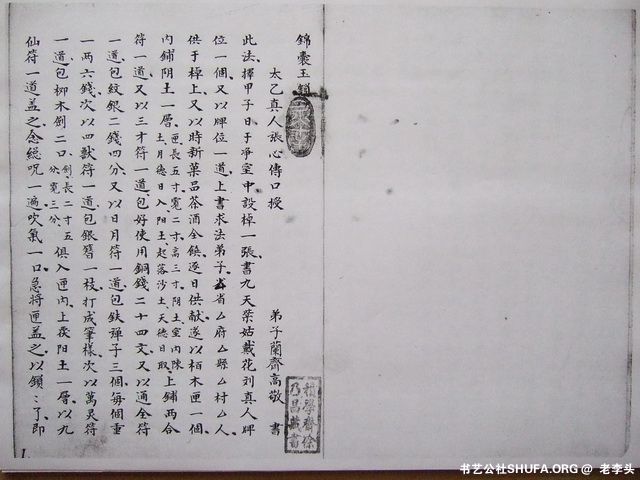 錦囊玉鎖
太乙真人張心傳口授
弟子蘭齊高敬 書
此法擇甲子日于净室中設棹一張書九天荣姑戴花刘真人牌
位一個又以牌位一道上書求法弟子厶省厶府厶縣厶村厶人
供于棹上又以時新菓品茶酒全饒逐日供献遂以栢木匣一個
内鋪阴土一層匣長五寸寬二寸高三寸阴土室内陳土月德日入阳土起落沙土天德日取上鋪两合
符一道又以三才符一道包好使用銅錢二十四文又以通全符
一道包紋銀二錢四分又以日月符一道包鉄弹子三個每個重
一两六錢次以四獸符一道包銀簪一枝打成筆樣次以萬灵符
一道包柳木劍二口劍長二寸五分寬三分俱入匣内上蓋阳土一層以九
仙符一道盖之念緫呪一遍吹氣一口急将匣盖之以鎖ミ了即
積學齊徐乃昌藏書
1
书艺公社SHUFA.ORG @ 老李头